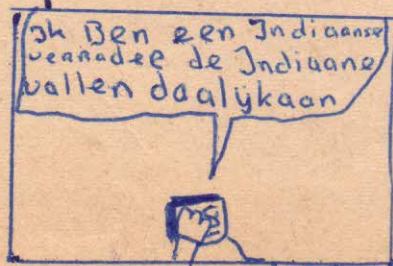 Ik Ben een Indiaanse
verradee de Indiaane
vallen daalijkaan